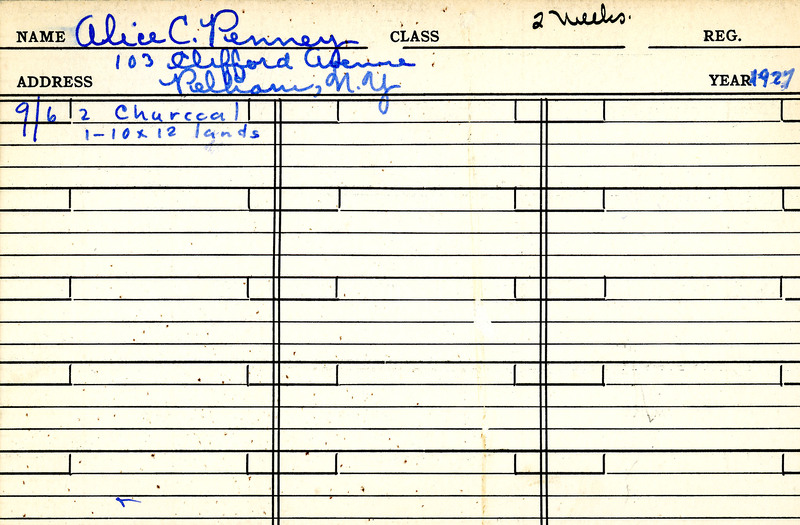 NAME Alice C. Penney CLASS 2 Weeks. REG.
103 Clifford Avenue
ADDRESS Pelham, N.Y YEAR 1927
9/6 2 Charcoal
1-10x12 lands